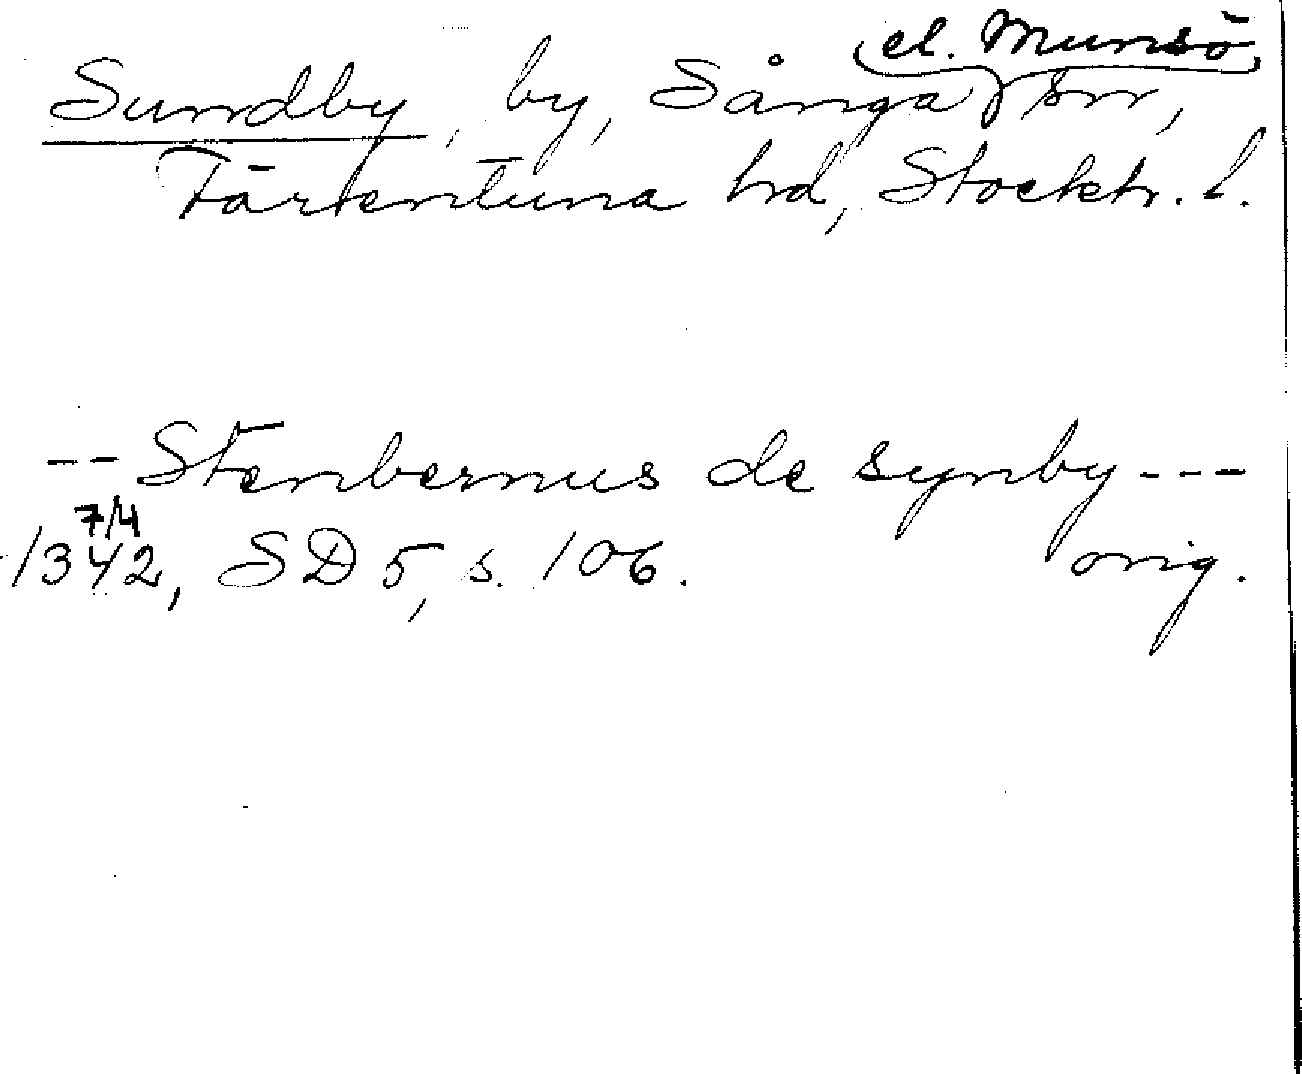 el. Munsö
Sundby, by, Sånga sn,
Färentuna hd, Stockh. l.
-- Stenbernus de synby ---
7/4
1342, SD 5, s. 106. orig.